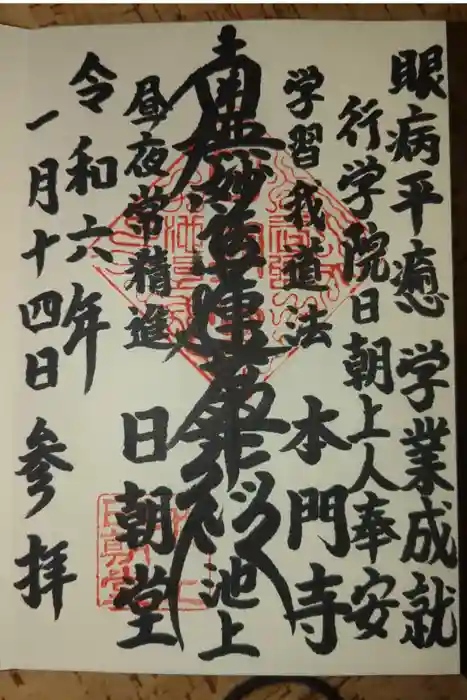 眼病平癒 学業成就
行学院日朝上人奉安
学習我道法 本門寺
池上
南無妙法蓮華経
昼夜常精進 日朝堂
令和六年
一月十四日 参拝